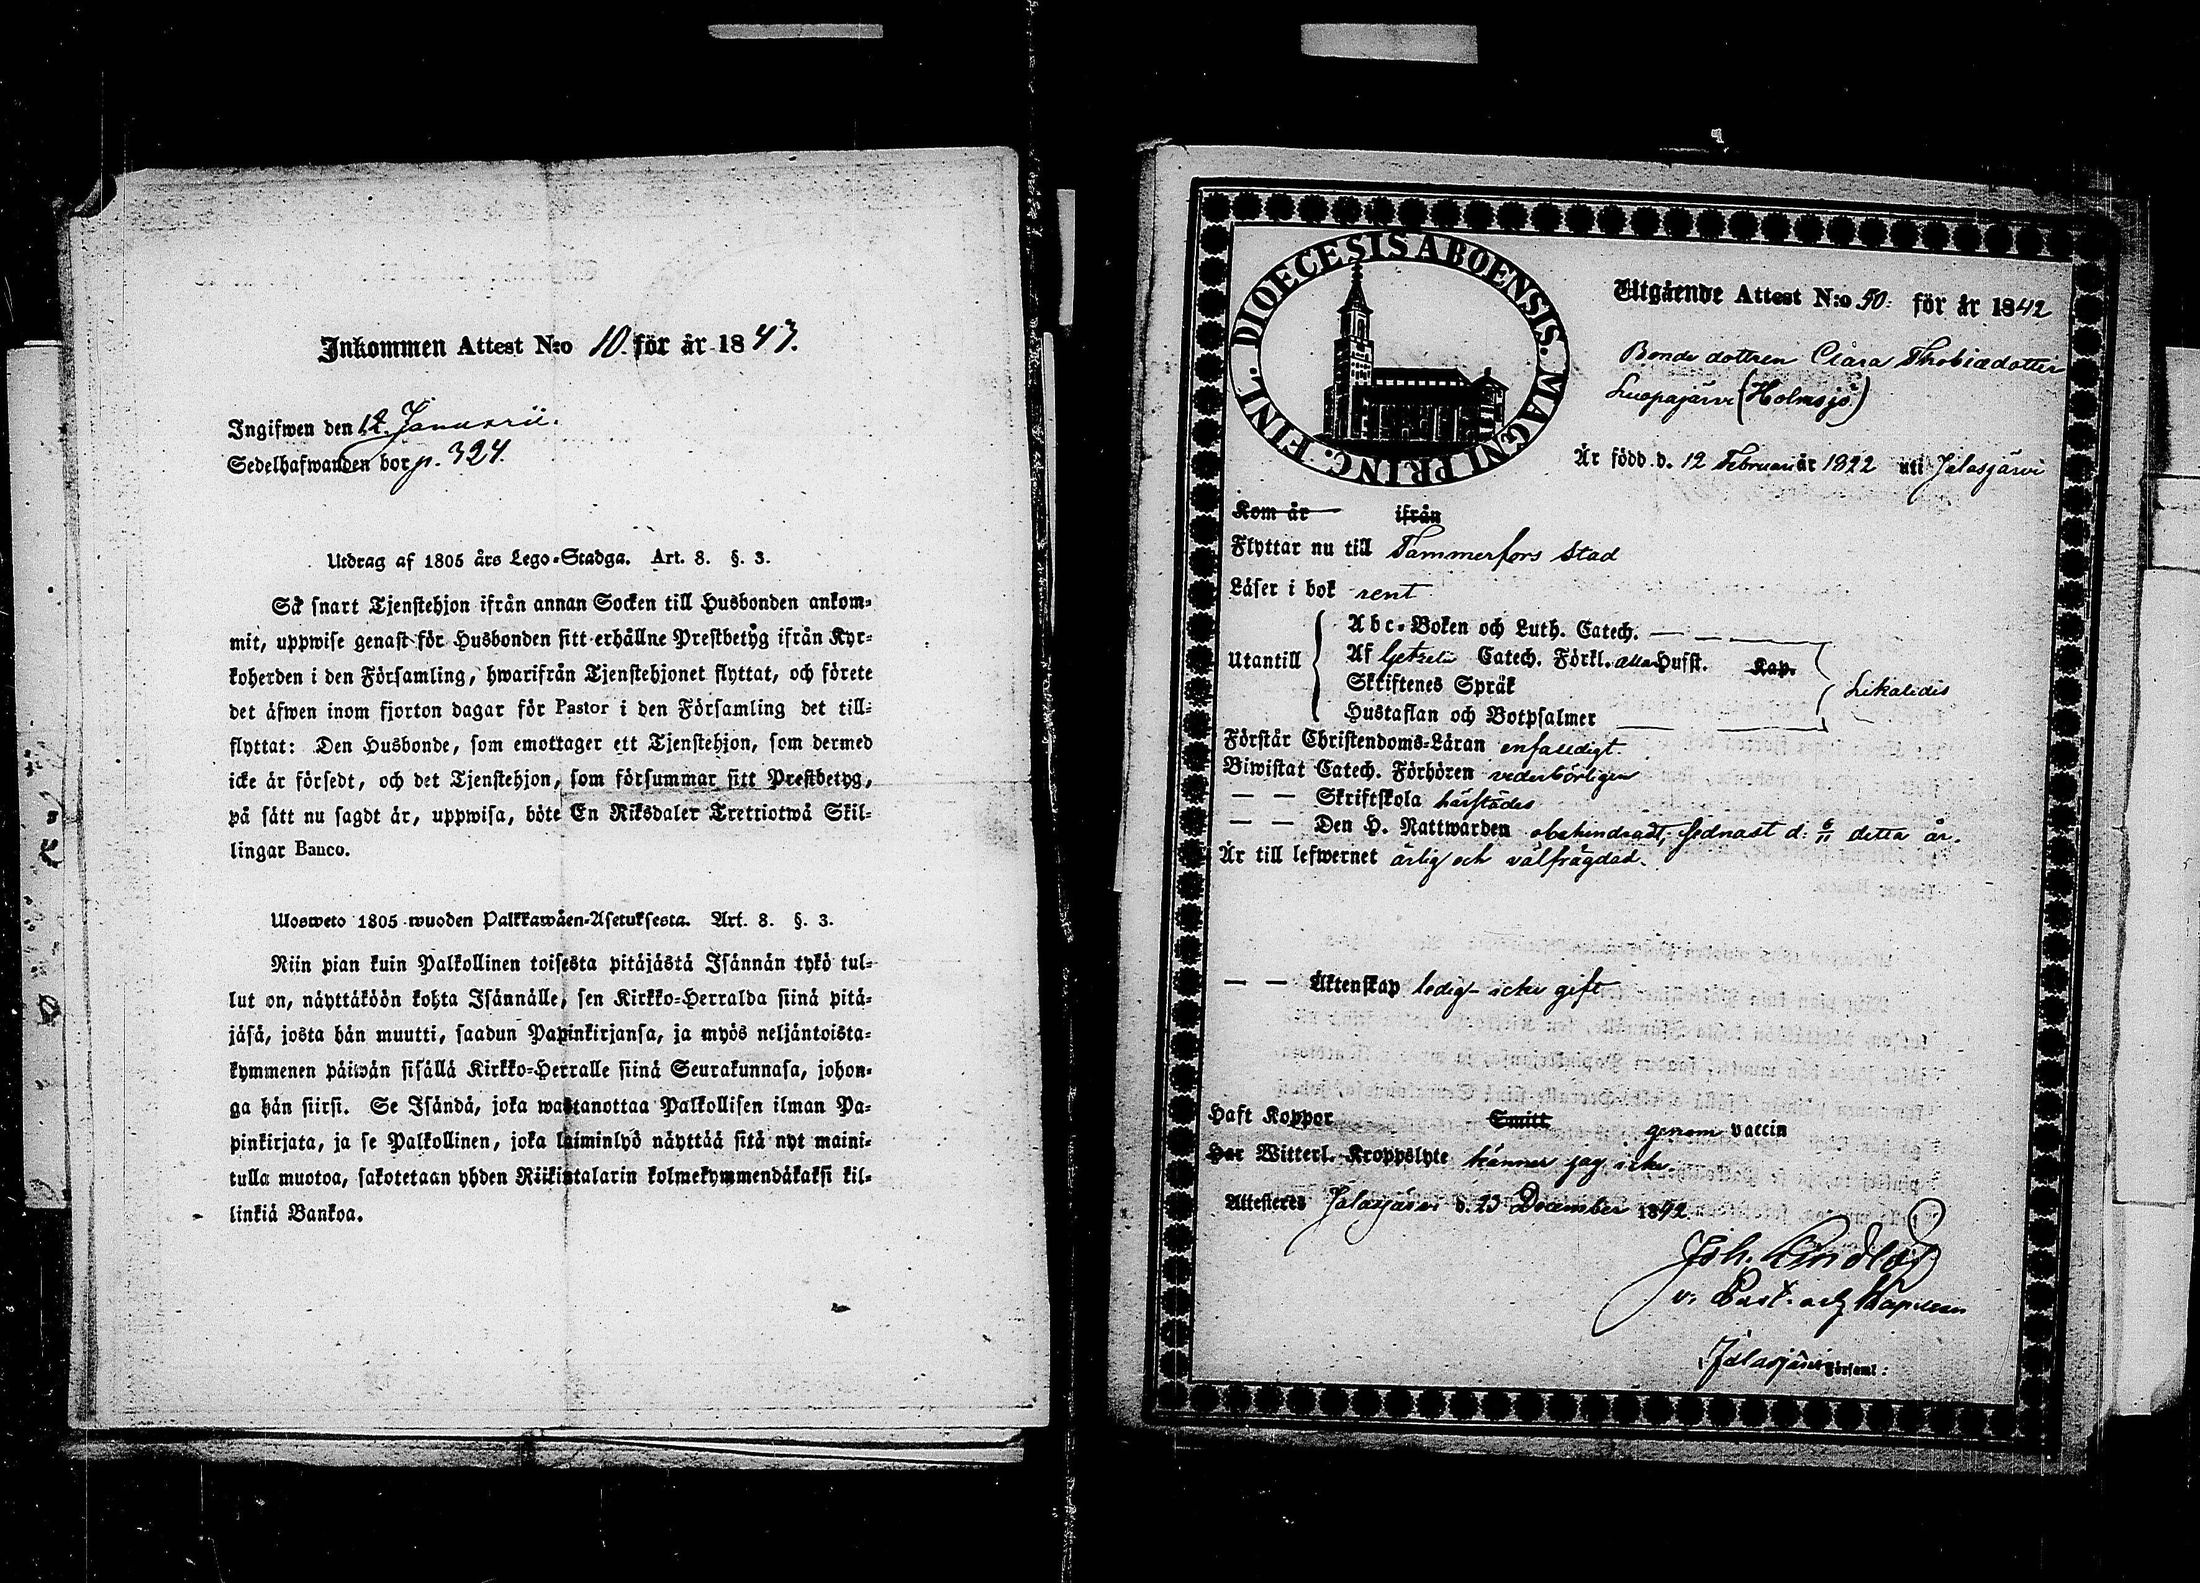 Inkommen Attest N:o 10. för år 1843.
Ingifwen den 12. Januarii.
Sedelhafwanden bor p. 324.
Utdrag af 1805 års Lego-Stadga. Art. 8. §. 3.
Så snart Tjenstehjon ifrån annan Socken till Husbonden ankom-
mit, uppwise genast för Husbonden sitt erhållne Prestbetyg ifrån Kyr-
koherden i den Församling, hwarifrån Tjenstehjonet flyttat, och förete
det äfwen inom fjorton dagar för Pastor i den Församling det till-
flyttat: Den Husbonde, som emottager ett Tjenstehjon, som dermed
icke är försedt, och det Tjenstehjon, som försummar sitt Prestbetyg,
på sätt nu sagdt är, uppwisa, böte En Riksdaler Trettiotwå Skil-
lingar Banco.
Ulosweto 1805 wuoden Palkkawäen-Asetuksesta. Art. 8. §. 3.
Niin pian kuin Palkollinen toisesta pitäjästä Isännän tykö tul-
lut on, näyttäköön kohta Isännälle, sen Kirkko-Herralda siinä pitä-
jäsä, josta hän muutti, saadun Papinkirjansa, ja myös neljäntoista-
kymmenen päiwän sisällä Kirkko-Herralle siinä Seurakunnasa, johon-
ga hän siirsi. Se Isändä, joka wastanottaa Palkollisen ilman Pa-
pinkirjata, ja se Palkollinen, joka laiminlyö näyttää sitä nyt maini-
tulla muotoa, sakotetaan yhden Riikintalarin kolmekymmendäkaksi kil-
linkiä Bankoa.
DIOECESIS ABOENSIS. MAGNI PRINC. FINL.
Utgående Attest N:o 50. för år 1842
Bonde dottren Clara Thobiædotter
Luopajärvi (Holmsjö)
Är född d. 12 Februari år 1822 uti Jalasjärvi
Kom år ifrån
Flyttar nu till Tammerfors Stad
Läser i bok rent
Abc-Boken och Luth. Catech.
Utantill Af Getzelii Catech. Förkl. alla Hufst. Kap.
Skriftenes Språk Likaledes
Hustaflan och Botpsalmer
Förstår Christendoms-Läran enfaldigt.
Biwistat Catech. Förhören vederbörligen
— — Skriftskola härstädes
— — Den H. Nattwarden obehindradt, sednast d. 6/11 detta år.
Är till lefwernet ärlig och välfrägdad.
— — Äktenskap ledig icke gift
Haft Koppor Smitt genom vaccin
Har Witterl. Kroppslyte känner jag icke.
Attesteres Jalasjärvi d. 23 December 1842.
Joh.
v. Past. och Kapellan
i Jalasjärvi Församl: